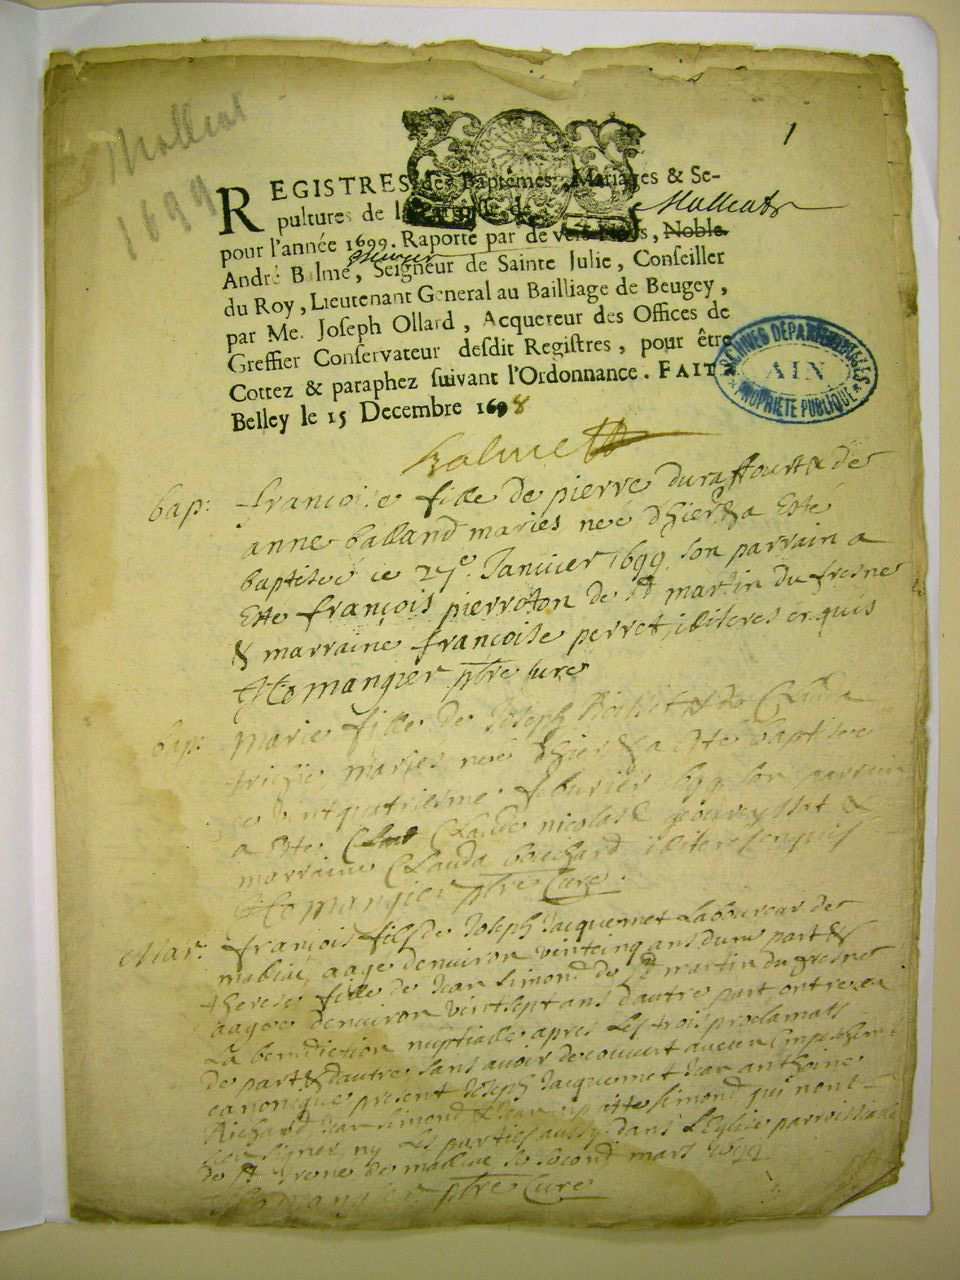 Malleat
1699
1
REGISTRES des Baptêmes, Mariages & Se-
pultures de la de Malleats
pour l'année 1699. Raporté par de vers Nous, Noble
André Balme, Seigneur de Sainte Julie, Conseiller
du Roy, Lieutenant General au Bailliage de Beugey,
par Me. Joseph Ollard, Acquereur des Offices de
Greffier Conservateur desdit Registres, pour être
Cottez & paraphez suivant l'Ordonnance. FAIT à
Belley le 15 Decembre 1698
ARCHIVES DÉPARTEMENTALES
AIN
PROPRIÉTÉ PUBLIQUE
Balme
bap: francoise fille de pierre duraffourt & de
anne balland maries nee d'hier & a Esté
baptisée ce 27e Janvier 1699 son parrain a
Esté françois pierroton de St martin du fresne
& marraine francoise perret, illiteres enquis
mangier pbre Curé
bap: Marie fille de Joseph & de Clauda
maries née d'hier & a Esté baptisée
ce vintquatriesme feburier 1699 son parrain
a Esté Claude nicolas &
marraine Clauda bouchard illiteres enquis
mangier pbre Curé.
Mar: francois fils de Joseph Jacquemet Laboureur de
aagé denuiron vintcinq ans dune part &
therese fille de Jean Simond de St martin du fresne
aagée denuiron vintsept ans d'autre part ont receu
La benediction nuptialle apres Les trois proclamats
de part & dautre sans auoir decouvert aucun Empeschement
canonique present Joseph Jacquemet Jean anthoine
Richard Jean Simond & Jean simond qui nont
sceu signer ny Les parties aussy dans L'Eglise parroissialle
de St de le second mars 1699
mangier pbre Curé